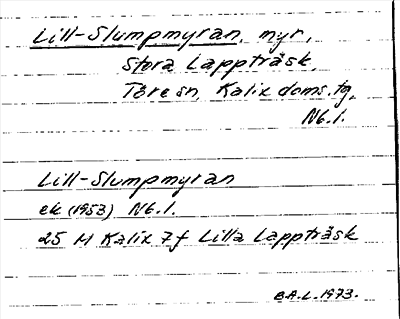 Lill-Slumpmyran, myr,
Stora Lappträsk,
Töre sn, Kalix doms. tg,
Nb. l.
Lill-Slumpmyran
ek (1953) Nb. l.
25 M Kalix 7f Lilla Lappträsk
B.A.L. 1973.